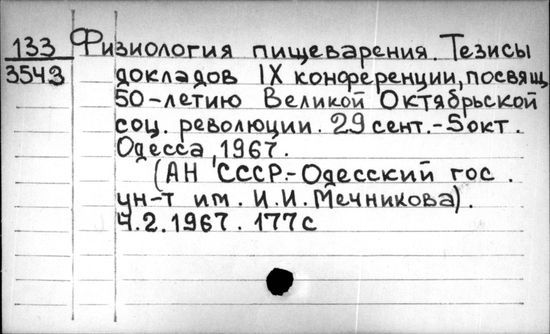 133 Физиология пищеварения. Тезисы
3543 докладов IX конференции, посвящ
50-летию Великой Октябрьской
соц. революции. 29 сент.-5окт.
Одесса, 1967.
(АН СССР.-Одесский гос.
ун-т им. И.И. Мечникова).
Ч.2.1967. 177с